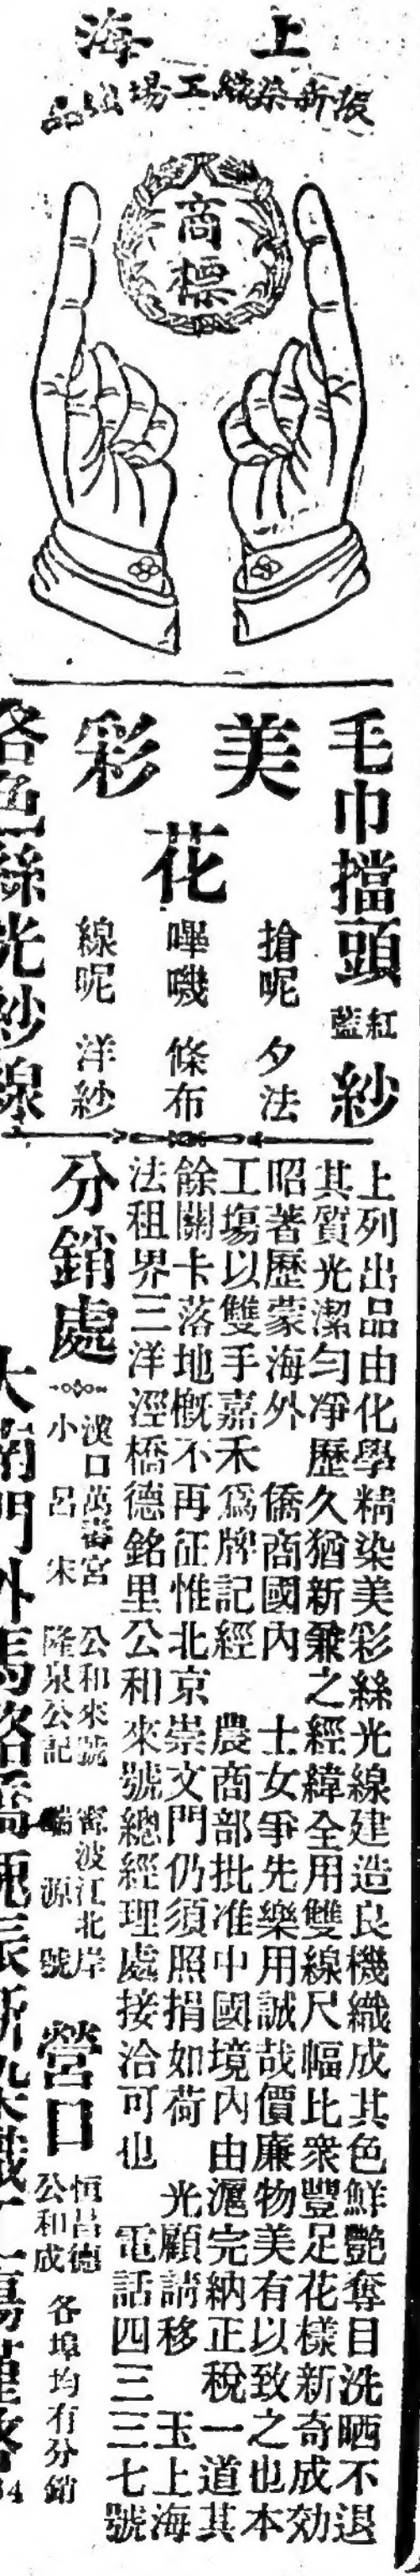 上海
振新染織工場出品
商標
毛巾擋頭
紅藍
紗
美彩花
搶呢 夕法
嗶嘰 條布
線呢 洋紗
各色絲光紗線
上列出品由化學精染美彩絲光線建造良機織成其色鮮艷奪目洗晒不退
其質光潔勻凈歷久猶新兼之經緯全用雙線尺幅比衆豐足花樣新奇成効
昭著歷蒙海外 僑商國內 士女爭先樂用誠哉價廉物美有以致之也本
工塲以雙手嘉禾爲牌記經 農商部批准中國境內由滬完納正稅一道其
餘關卡落地概不再征惟北京崇文門仍須照捐如荷 光顧請移 玉上海
法租界三洋涇橋德銘里公和來號總經理處接洽可也 電話四三三七號
分銷處
漢口萬壽宮 公和來號 甯波江北岸
小呂宋 隆泉公記 源號
營口
恒昌德
公和成
各埠均有分銷
大南門外馬路橋塊振新染織工塲謹啓